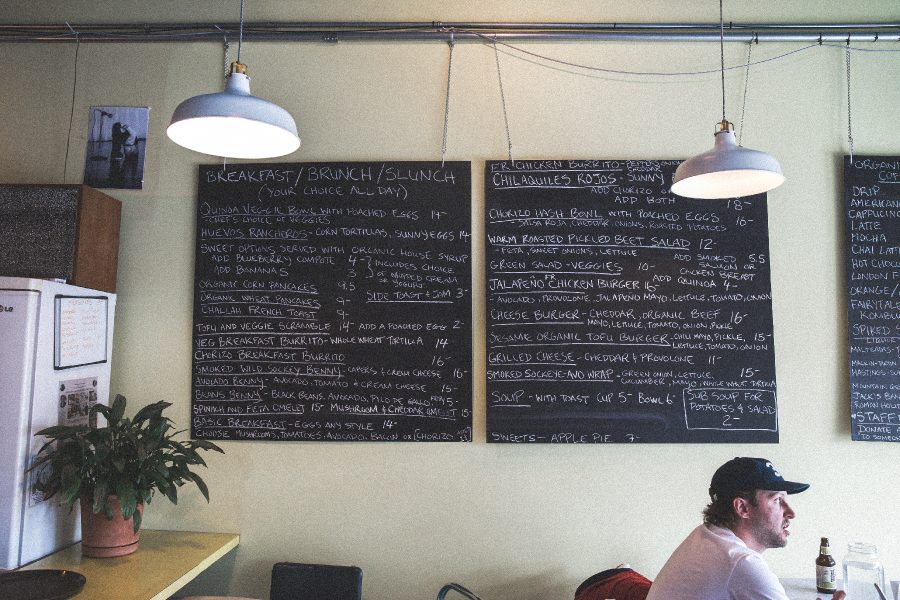 BREAKFAST/BRUNCH/SLUNCH
(YOUR CHOICE ALL DAY)
QUINOA VEGGIE BOWL WITH POACHED EGGS 14-
CHOICE OF VEGGIES
HUEVOS RANCHEROS - CORN TORTILLAS, SUNNY EGGS 14-
SWEET OPTIONS SERVED WITH ORGANIC HOUSE SYRUP
ADD BLUEBERRY COMPOTE 4-
ADD BANANAS 3-
INCLUDES CHOICE
OF WHIPPED CREAM
OR YOGURT
ORGANIC CORN PANCAKES 9.5
SIDE TOAST & JAM 3-
ORGANIC WHEAT PANCAKES 9-
CHALLAH FRENCH TOAST 9-
TOFU AND VEGGIE SCRAMBLE 14- ADD A POACHED EGG 2-
VEG BREAKFAST BURRITO - WHOLE WHEAT TORTILLA 14
CHORIZO BREAKFAST BURRITO 16-
SMOKED WILD SOCKEY BENNY - CAPERS & CREAM CHEESE 16-
AVOCADO BENNY - AVOCADO, TOMATO & CREAM CHEESE 15-
BEANS BENNY - BLACK BEANS, AVOCADO, PICO DE GALLO 15-
SPINACH AND FETA OMELET 15- MUSHROOM & CHEDDAR OMELET 15-
BASIC BREAKFAST - EGGS ANY STYLE 14-
CHOOSE MUSHROOMS, TOMATOES, AVOCADO, BACON OR [CHORIZO
FR CHICKEN BURRITO -
CHEDDAR
CHILAQUILES ROJOS - SUNNY
ADD CHORIZO OR
ADD BOTH 18-
CHORIZO HASH BOWL WITH POACHED EGGS 16-
- SALSA ROJA, CHEDDAR, ONIONS, ROASTED POTATOES
WARM ROASTED PICKLED BEET SALAD 12-
- FETA, SWEET ONIONS, LETTUCE
ADD SMOKED 5.5
SALMON OR
CHICKEN BREAST
GREEN SALAD - VEGGIES 10-
ADD QUINOA 4-
JALAPEÑO FR CHICKEN BURGER 16-
- AVOCADO, PROVOLONE, JALAPENO MAYO, LETTUCE, TOMATO, ONION
CHEESE BURGER - CHEDDAR, ORGANIC BEEF 16-
MAYO, LETTUCE, TOMATO, ONION, PICKLE
SESAME ORGANIC TOFU BURGER - CHILI MAYO, PICKLE, 15-
LETTUCE, TOMATO, ONION
GRILLED CHEESE - CHEDDAR & PROVOLONE 11-
SMOKED SOCKEYE - AVO WRAP - GREEN ONION, LETTUCE, 15-
CUCUMBER, MAYO, WHOLE WHEAT TORTILLA
SOUP - WITH TOAST CUP 5- BOWL 6-
SUB SOUP FOR
POTATOES & SALAD
2-
SWEETS - APPLE PIE 7-
ORGANIC
COF
DRIP
AMERICANO
CAPPUCINO
LATTE
MOCHA
CHAI LATT
HOT CHOCO
LONDON F
ORANGE/
FAIRYTALE
KOMBU
SPIKED
MALTEADAS-T
HASTINGS
MOUNTAIN
JACK'S BAN
ROMAN HOLI
STAFF
DONATE A
TO SOMEON
3